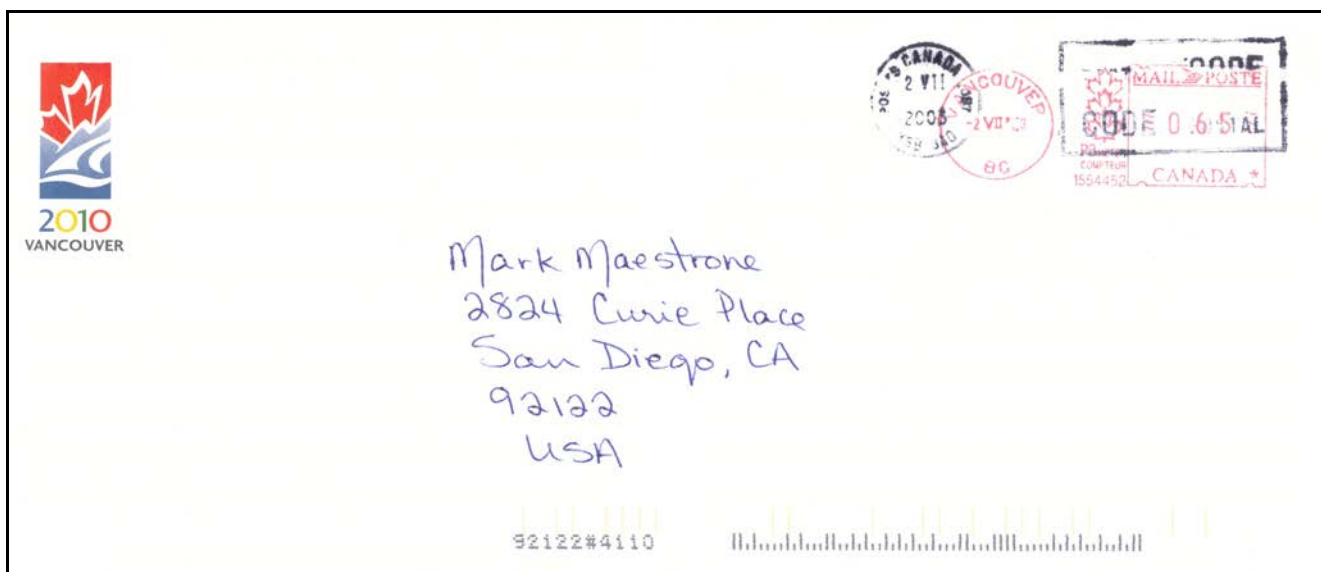 2010
VANCOUVER
CANADA
2 VII
2003
VANCOUVER
-2 VII
MAIL POSTE
CODE
0.65
CANADA
COMPTEUR
1554452
Mark Maestrone
2824 Curie Place
San Diego, CA
92122
USA
92122#4110